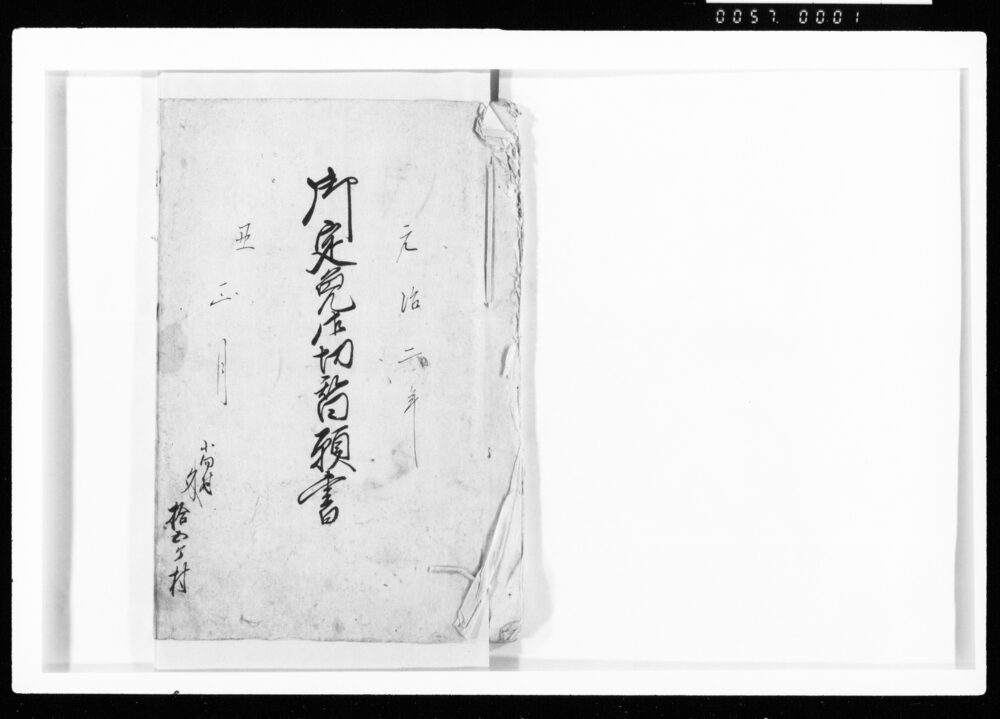 0057.0001
元治二年
御定免御切替願書
丑正月
小向村
拾五ケ村